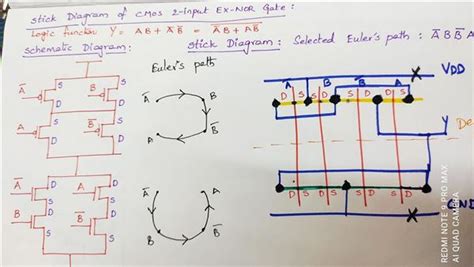 Stick Diagram of CMOS 2-input EX-NOR Gate:
Logic function Y = AB + A̅B̅ = \overline{A̅B + AB̅}
Schematic Diagram: Stick Diagram: Selected Euler's path: A̅ B B̅ A
Euler's path
A̅ B B̅ A VDD
D S S D S D D S
A̅ A
D D
S S
B B̅
D D
S S
A̅ B
B̅
Y
De
A̅ A
D D
S S
B B̅
D D
S S
A̅ A
B B̅
D S S D S D D S
GND
REDMI NOTE 9 PRO MAX
AI QUAD CAMERA